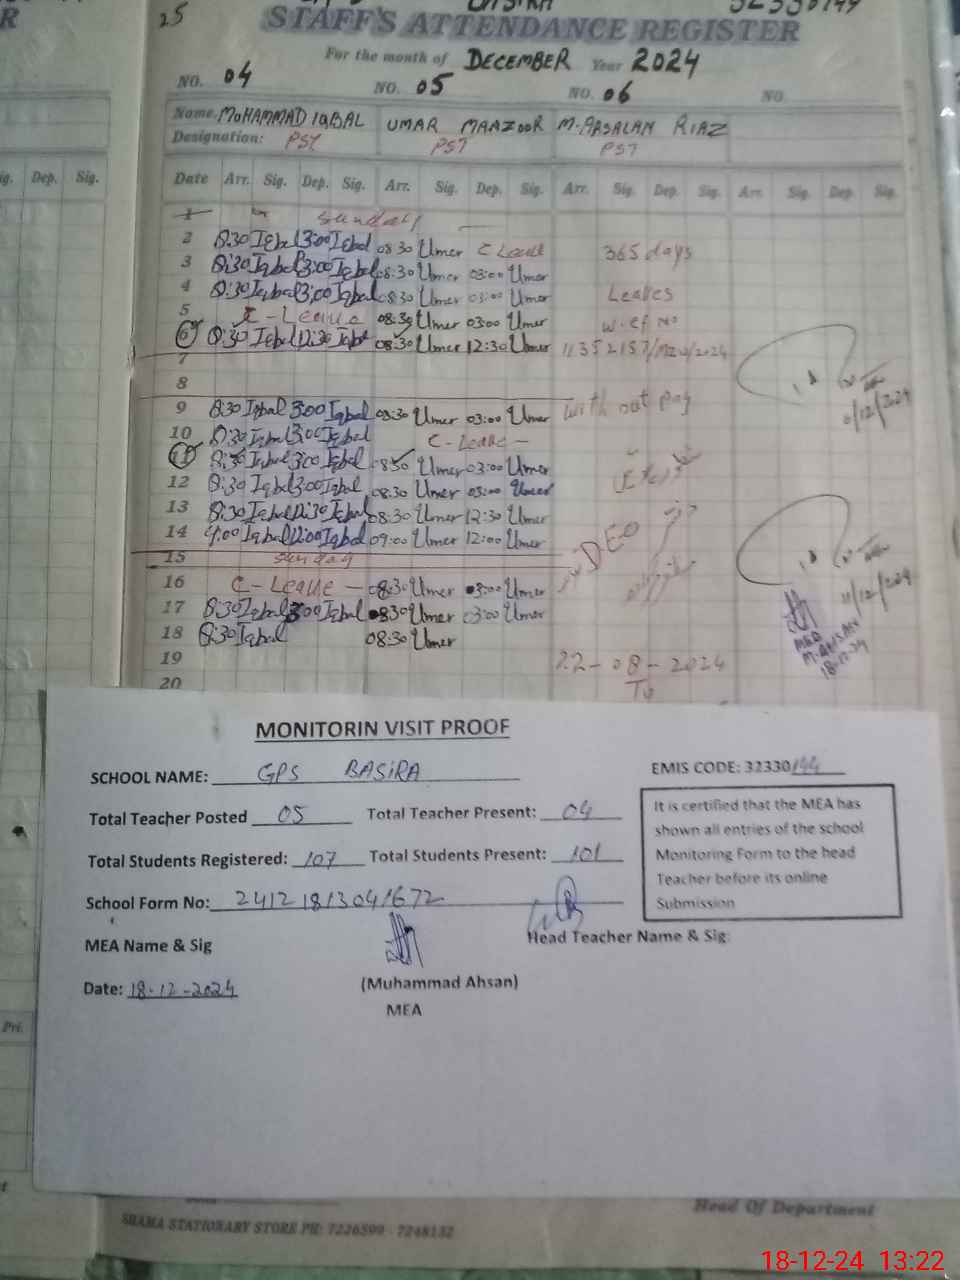 25
STAFF'S ATTENDANCE REGISTER
For the month of DECEMBER Year 2024
NO. 04 NO. 05 NO. 06 NO.
Name. MOHAMMAD IQBAL UMAR MANZOOR M. ARSALAN RIAZ
Designation: PST PST PST
ig. Dep. Sig. Date Arr. Sig. Dep. Sig. Arr. Sig. Dep. Sig. Arr. Sig. Dep. Sig. Arr. Sig. Dep. Sig.
1 Sunday
2 8:30 Iqbal 3:00 Iqbal 08:30 Umer C Leave 365 days
3 8:30 Iqbal 3:00 Iqbal 08:30 Umer 03:00 Umer
4 8:30 Iqbal 3:00 Iqbal 08:30 Umer 03:00 Umer Leaves
5 C-Leave 08:30 Umer 03:00 Umer w.ef No
6 8:30 Iqbal 12:30 Iqbal 08:30 Umer 12:30 Umer
7
8
9 8:30 Iqbal 3:00 Iqbal 08:30 Umer 03:00 Umer with out pay
10 8:30 Iqbal 3:00 Iqbal C-Leave -
11 8:30 Iqbal 3:00 Iqbal 08:30 Umer 03:00 Umer
12 8:30 Iqbal 3:00 Iqbal 08:30 Umer 03:00 Umer
13 8:30 Iqbal 12:30 Iqbal 08:30 Umer 12:30 Umer DEO
14 9:00 Iqbal 12:00 Iqbal 09:00 Umer 12:00 Umer
15 Sunday
16 C-Leave - 08:30 Umer 03:00 Umer 11/12/2024
17 8:30 Iqbal 3:00 Iqbal 08:30 Umer 03:00 Umer
18 8:30 Iqbal 08:30 Umer MEA
M. AHSAN
18-12-24
19 22-08-2024
20 To
MONITORIN VISIT PROOF
SCHOOL NAME: GPS BASIRA EMIS CODE: 32330144
Total Teacher Posted 05 Total Teacher Present: 04
Total Students Registered: 107 Total Students Present: 101
It is certified that the MEA has
shown all entries of the school
Monitoring Form to the head
Teacher before its online
Submission
School Form No: 24121813041672
MEA Name & Sig Head Teacher Name & Sig:
Date: 18-12-2024 (Muhammad Ahsan)
MEA
Pri.
Head Of Department
SHAMA STATIONARY STORE PH: 7226599 - 7248152
18-12-24 13:22